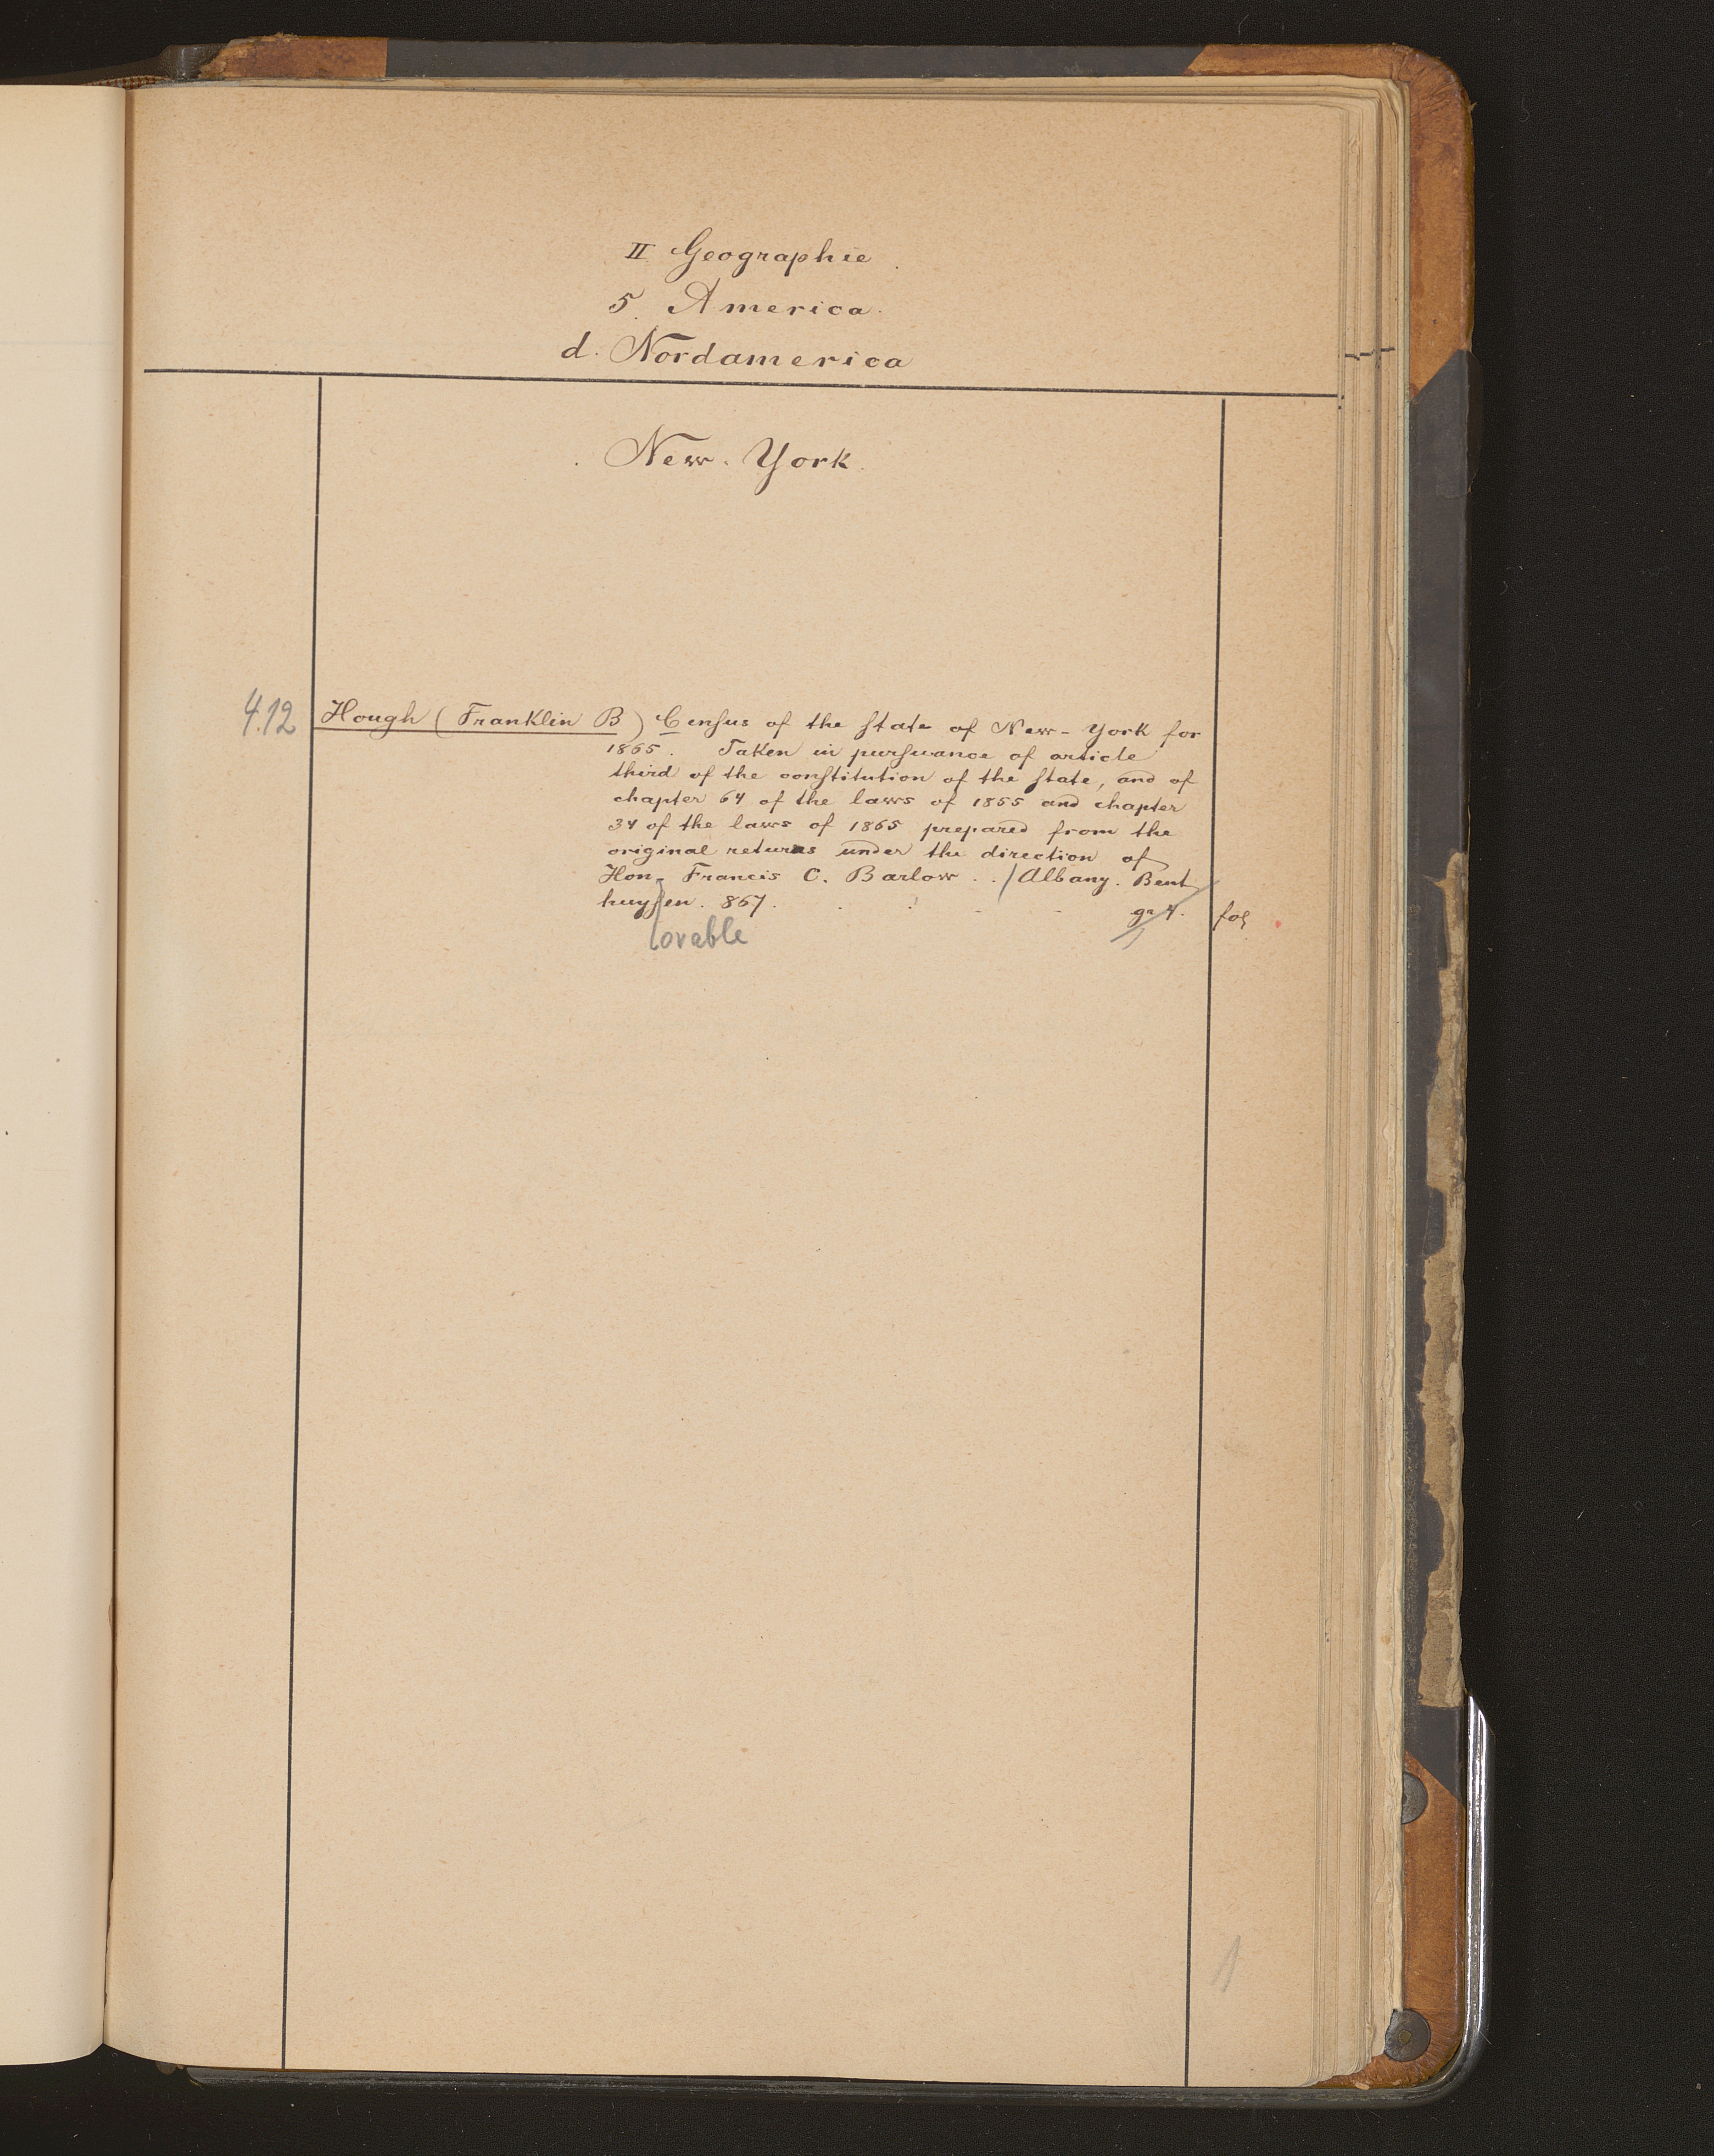 II Geographie.
5. America.
d. Nordamerica
New-York.
4.12 Hough (Franklin B) Cenſus of the ſtate of New-York for
1865. Taken in purſuance of article
third of the conſtitution of the ſtate, and of
chapter 64 of the laws of 1855 and chapter
34 of the laws of 1865 prepared from the
original returns under the direction of
Hon. Francis C. Barlow . . / Albany. Bent
huyſen. 867. gr 4. fol
lovable
1